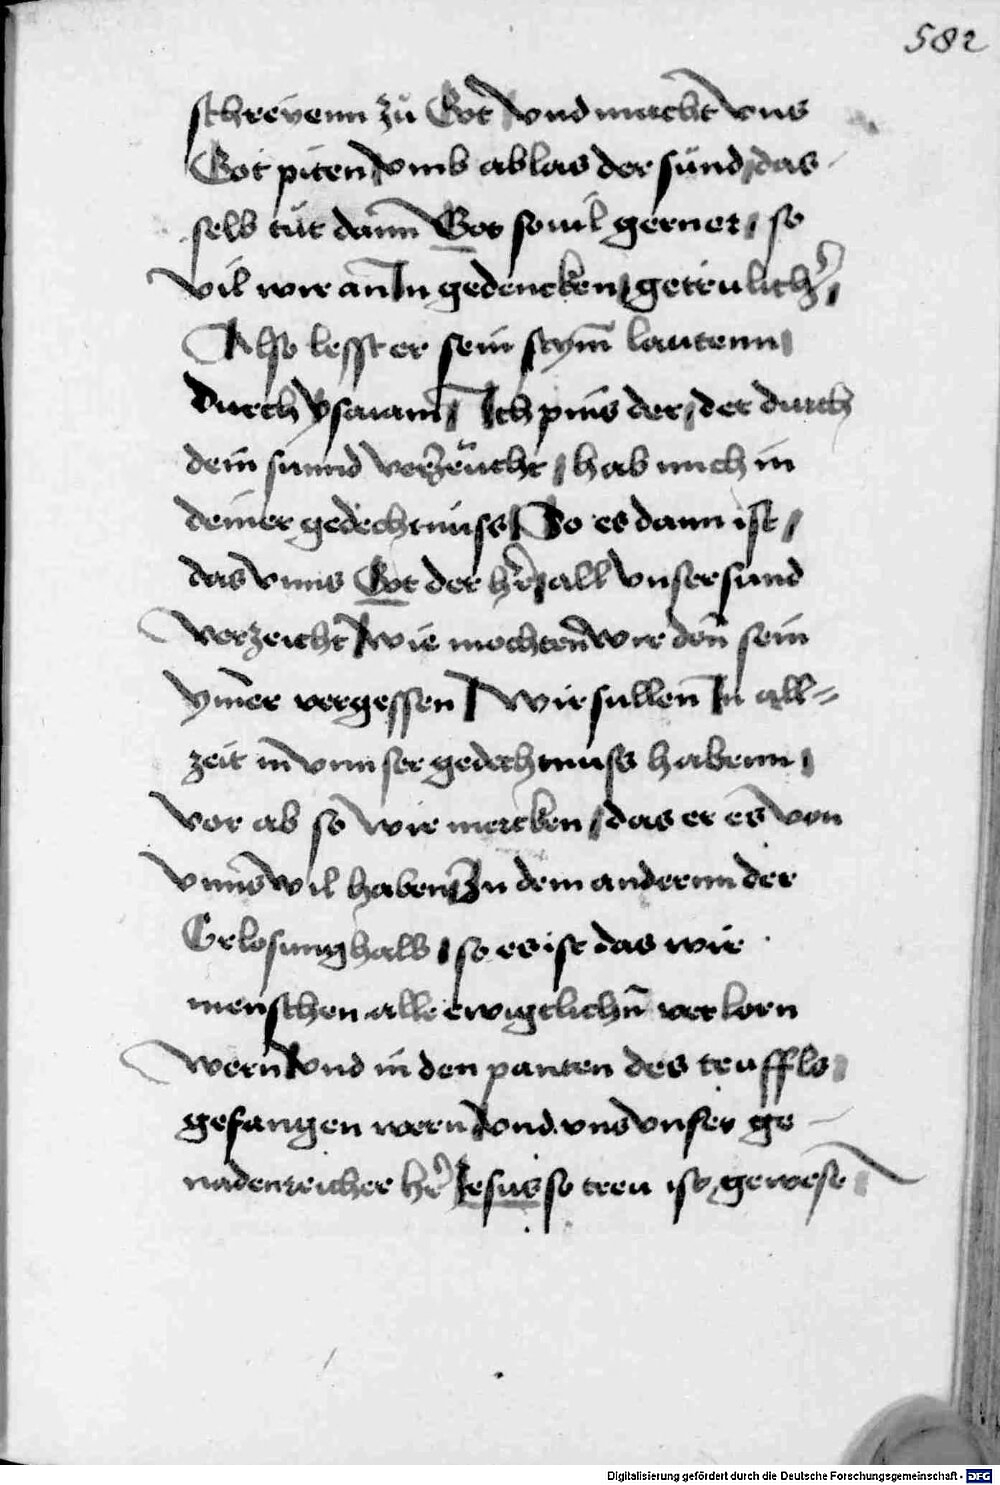 582
schreyenn zů Got vnd macht vns
Got piten vmb ablas der sünd das
selb tůt dann Got souil gerner so
vil wir an In gedencken getrulicher
Also lesst er sein stym̄ lautenn
durch ysaiam Ich pins der der durch
dein suund verzeücht hab mich in
deiner gedechtnuss So es dann ist
das vnns Got der her all vnser sund
verzeicht wie mochten wir den̄ sein
ym̄er vergessen Wir sullen In all=
zeit in vnnser gedechtnuss habenn
vor ab so wir mercken das er es von
vnns wil haben Zu dem andernn der
Erlosung halb so es ist das wir
menschen alle ewigclichn̄ verlorn
wern vnd in den panten des teuffls
gefangen wern vnd vns vnser ge
nadenreicher her Jesus so treu ist gewest
Digitalisierung gefördert durch die Deutsche Forschungsgemeinschaft - DFG